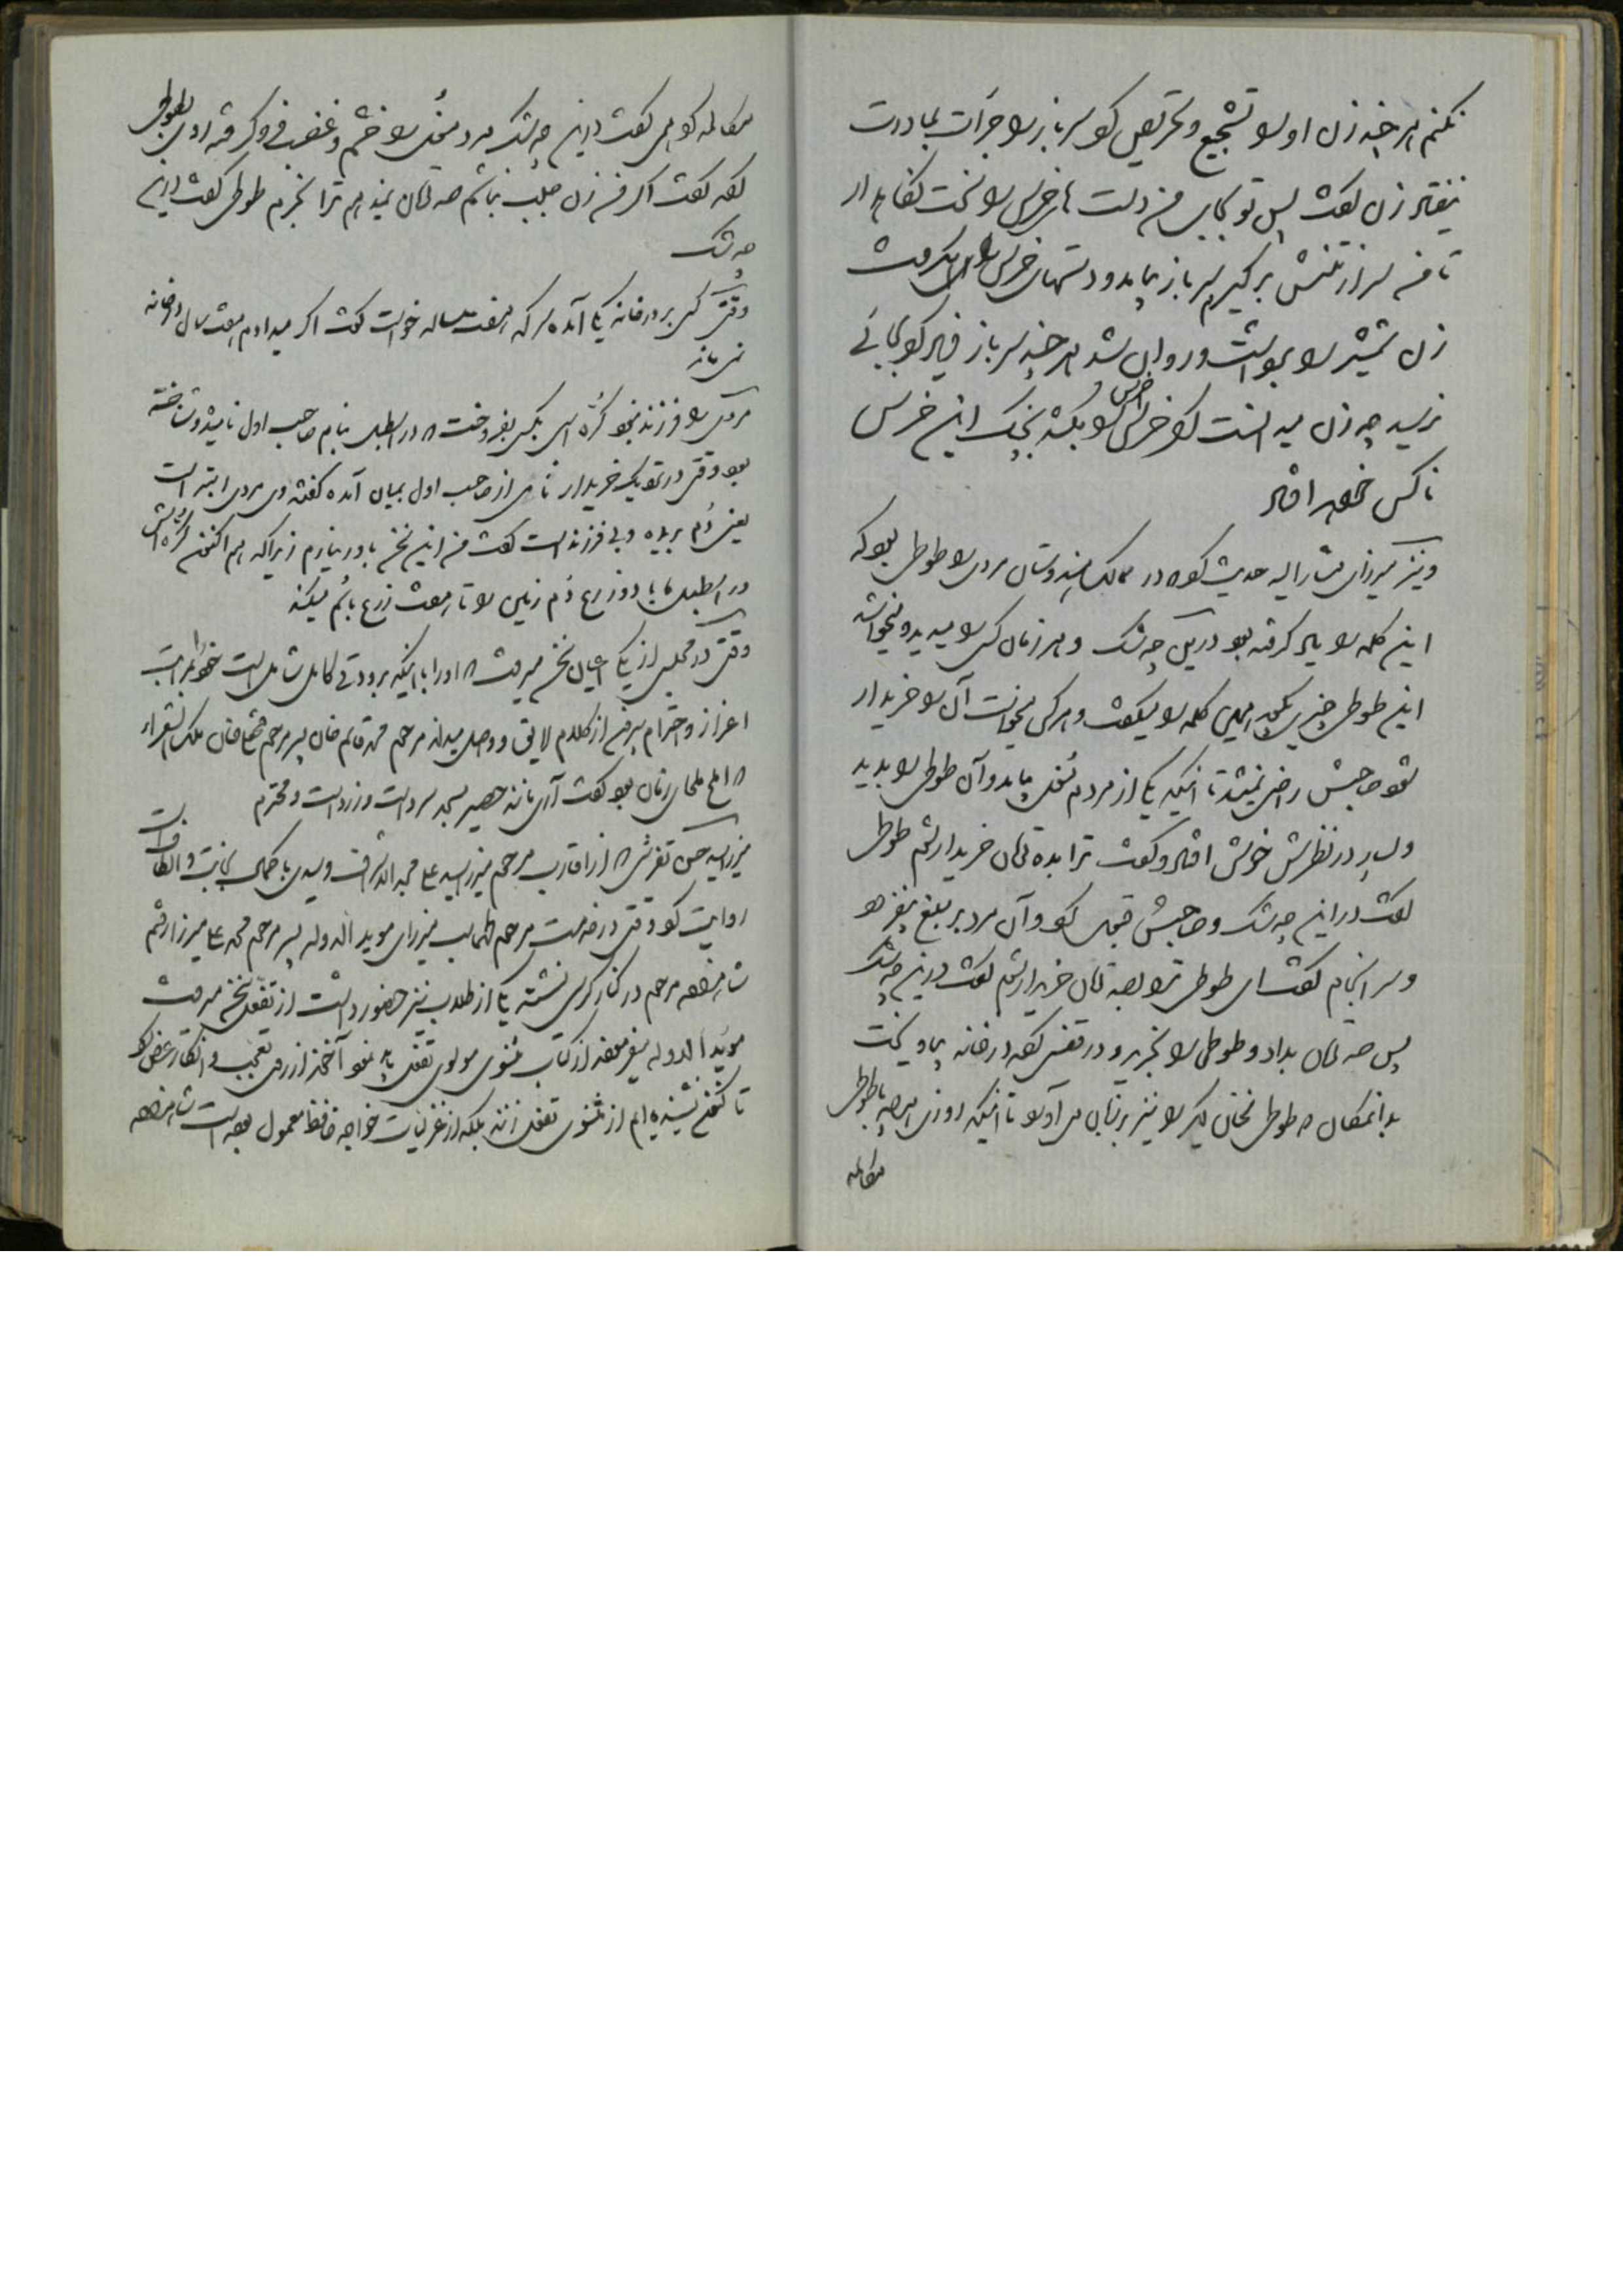 نکنم هر چه زن او را تشجیع و تحریص کرد سرباز را جرأت مبادرت
نیفتاد زن گفت پس تو بجای من دست های خرس را سخت نگاهدار
تا من سر از تنش برگیرم سرباز بیامد و دستهای خرس را بگرفت
زن شمشیر را برداشت و روان شد هر چه سرباز فریاد کرد بجائی
نرسید چه زن میدانست که خرس او را بکشد بچنگ این خرس
ناکس خواهد افتاد
و نیز میرزای مشار الیه حدیث کرد که در ممالک هندوستان مردی را طوطی بود که
این کلمه را یاد گرفته بود درین چه شک و هر زمان کسی را میدید و میخواند
این طوطی چیزی بگوید همین کلمه را میگفت و هر کس میخواست آن را خریدار
شود صاحبش راضی نمیشد تا اینکه یکی از مردم مغول بیامد و آن طوطی را بدید
و بسیار در نظرش خوش افتاد و گفت ترا بده تومان خریدارم طوطی
گفت در این چه شک و صاحبش قبول نکرد و آن مرد بر مبلغ بیفزود
و سر انجام گفت ای طوطی ترا بصد تومان خریدارم گفت درین چه شک
پس صد تومان بداد و طوطی را بخرید و در قفس کرده در خانه بیاویخت
بدانمکان که طوطی سخنان دیگر را نیز بر زبان می آورد تا اینکه روزی هر چه با طوطی
مکالمه
مکالمه کرد همی گفت در این چه شک مرد مغول را خشم و غضب فرو گرفته روی بطوطی
کرده گفت اگر من زن جلب نباشم صد تومان نمیدهم ترا بخرم طوطی گفت در این
چه شک
وقتی کسی بر در خانه یکی آمده سرکه هفت ساله خواست گفت اگر میدادم هفت سال در خانه
نمی ماند
مردی را فرزند نبود کره اسبی بکسی بفروخت که در اصطبل بنام صاحب اول نامیده و شناخته
بود وقتی در نزدیک خریدار نامی از صاحب اول بمیان آمده گفتند وی مردی ابتر است
یعنی دم بریده و بی فرزند است گفت من این سخن باور نیارم زیرا که هم اکنون کره اش
در اصطبل ما با دو ذرع دم زمین را تا هفت ذرع با دم میکند
وقتی در مجلس از یکی اعیان سخن میرفت که او را با اینکه برودتی کامل شامل است خود را مراتب
اعزاز و احترام بیرون از کلام لایق و واصل میداند مرحوم محمد قاسم خان پسر مرحوم فتحعلی خان ملک الشعراء
که املح ملحای زمان بود گفت آری مانند حصیر مسجد سرد است و زرد است و محترم
میرزا سید حسن تفرشی که از اقارب مرحوم میرزا سید علی مجد الاشراف و سیدی با کمال نجابت و الطافات
روایت کرد وقتی در خدمت مرحوم طهماسب میرزای مؤید الدوله پسر مرحوم محمد علی میرزا رفتم
شاهزاده مرحوم در کنار کرسی نشسته یکی از طلاب نیز حضور داشت از تفأل سخن میرفت
مؤید الدوله میفرمود از کتاب مثنوی مولوی تفأل باید نمود آخوند از روی تعجب و انکار عرض کرد
تا کنون نشنیده ام از مثنوی تفأل زنند بلکه از غزلیات خواجه حافظ معمول بوده است شاهزاده